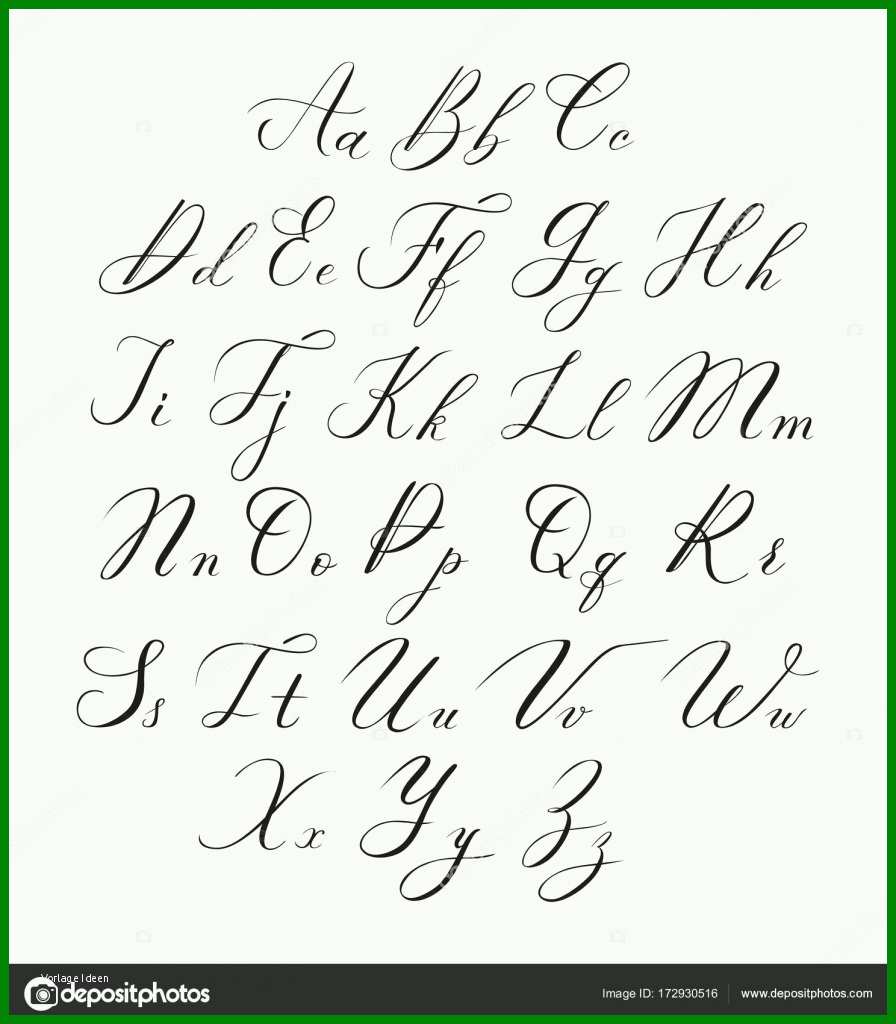 Aa Bb Cc
Dd Ee Ff Gg Hh
Ii Jj Kk Ll Mm
Nn Oo Pp Qq Rr
Ss Tt Uu Vv Ww
Xx Yy Zz
Vorlage Ideen
depositphotos Image ID: 172930516 www.depositphotos.com